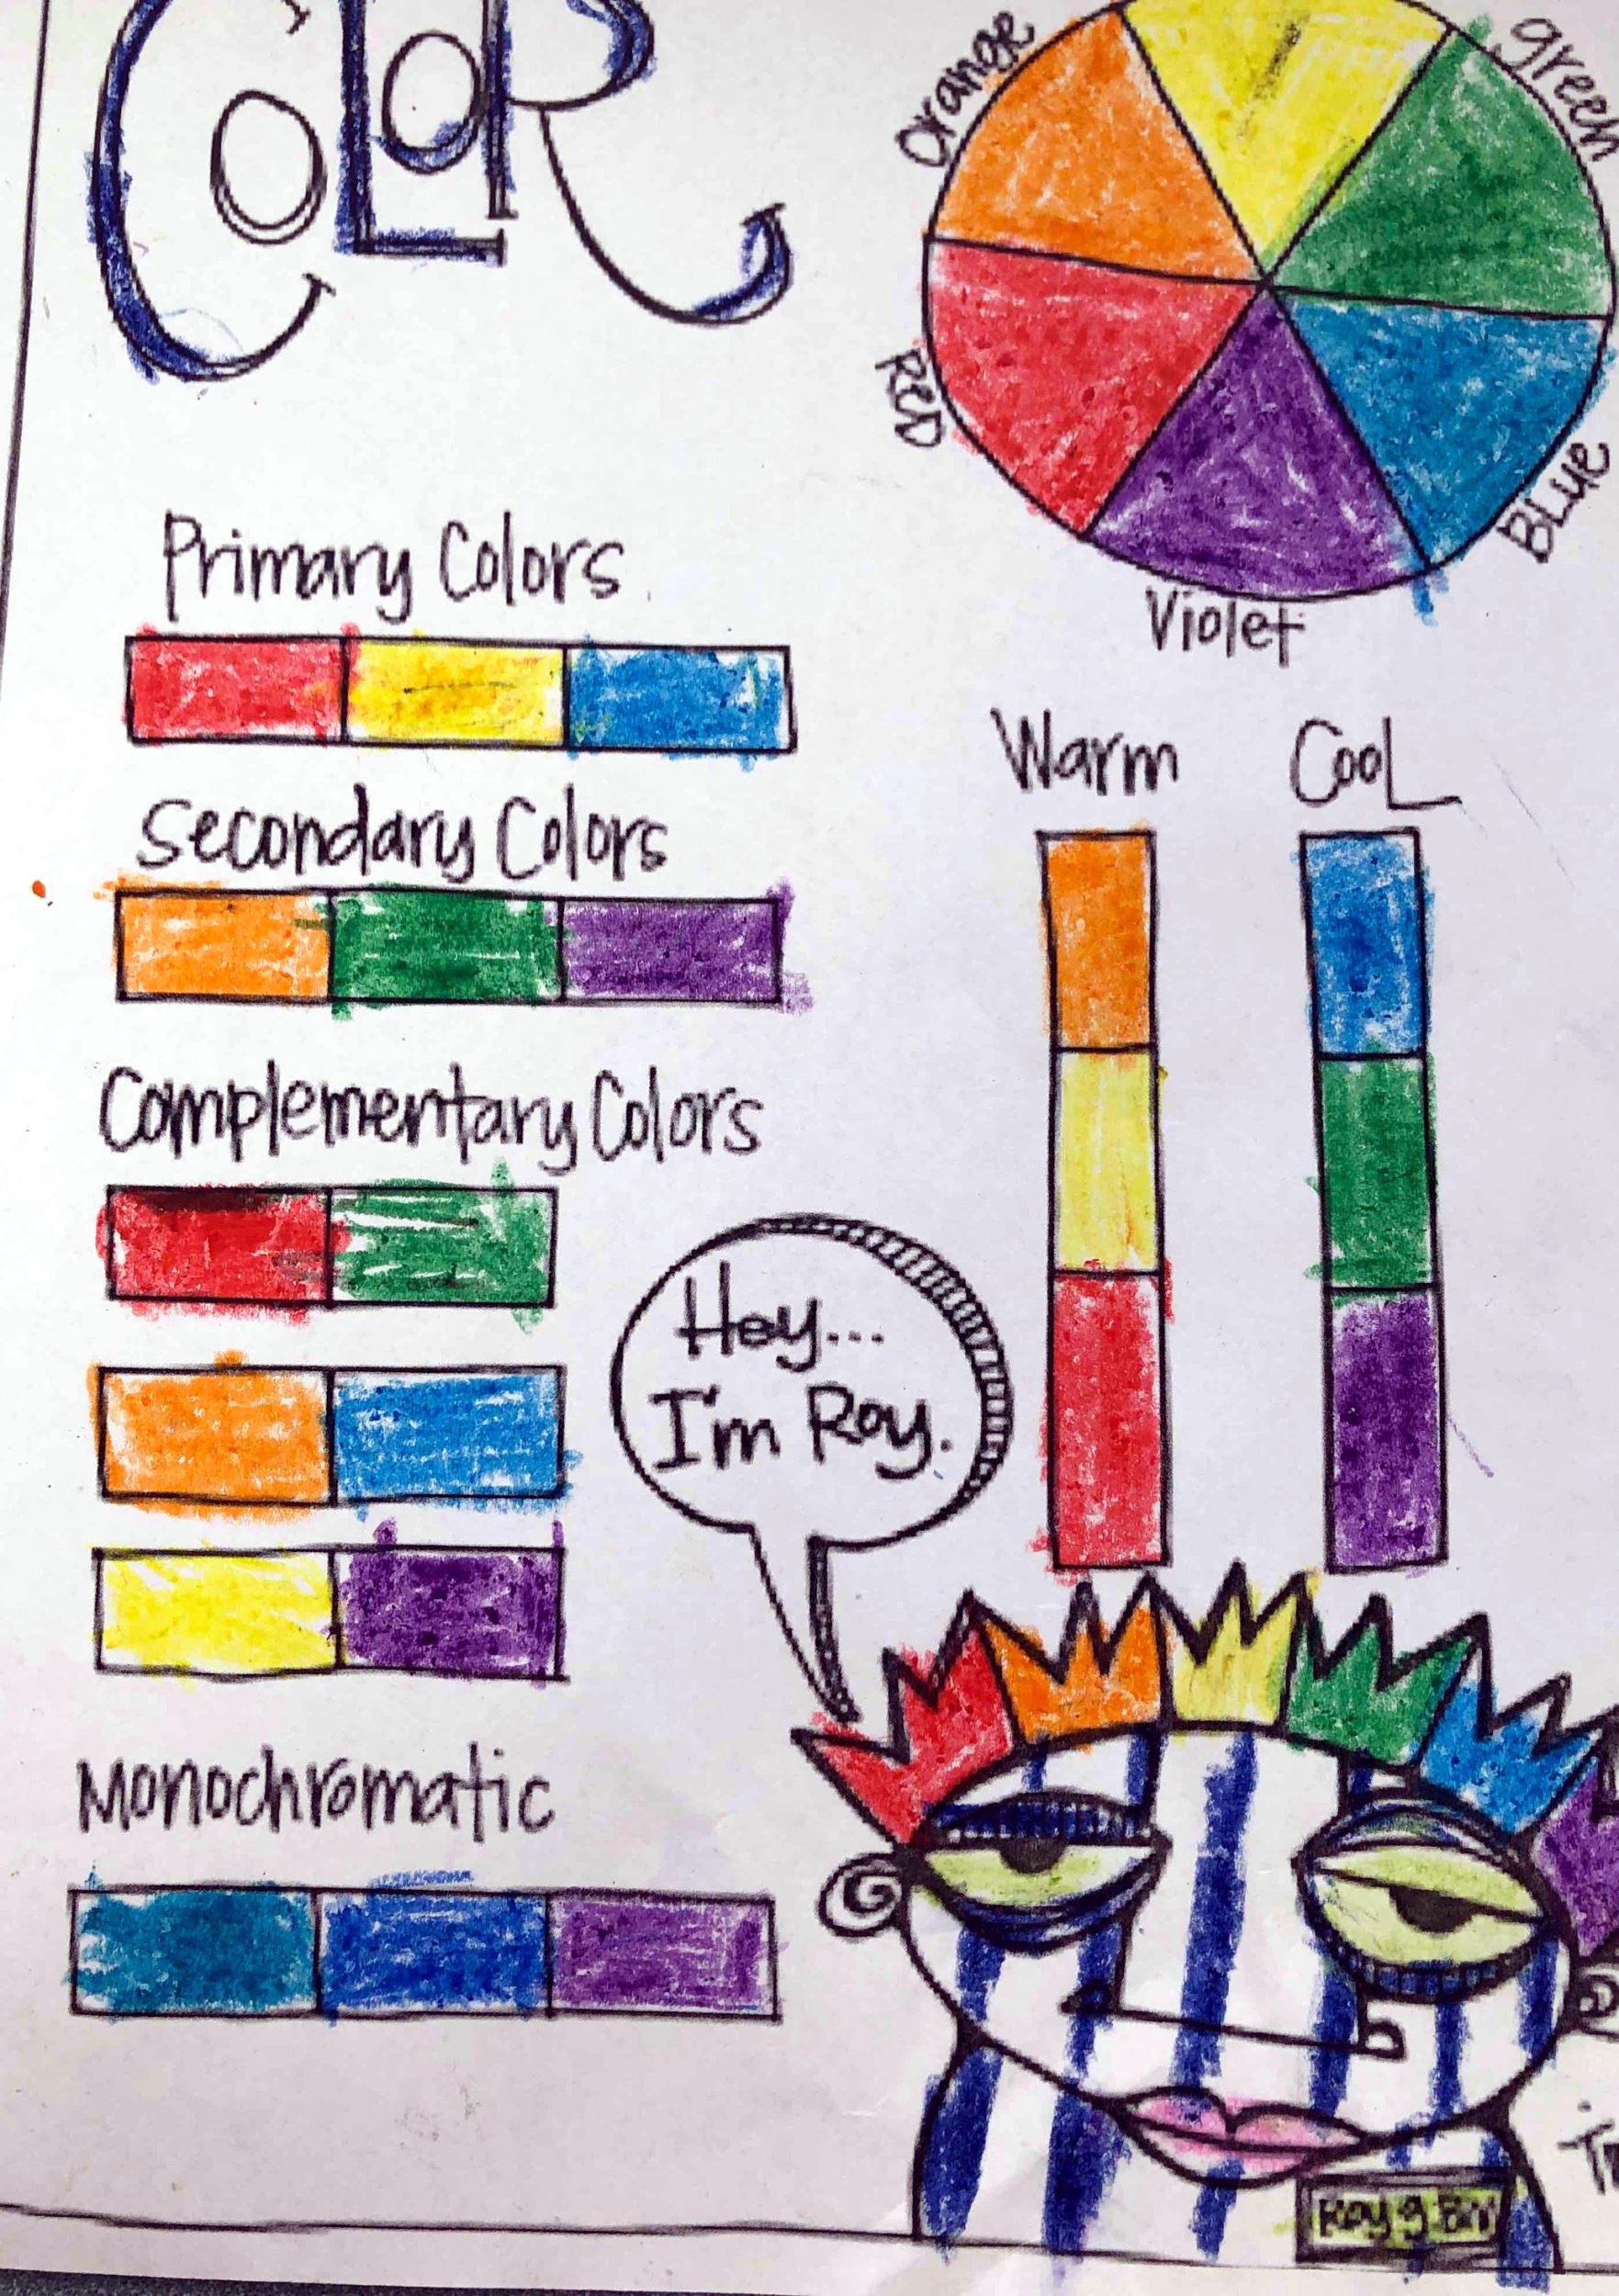 COLOR
Orange
green
Red
BLue
Violet
Primary Colors
Secondary Colors
Complementary Colors
Monochromatic
Warm
CooL
Hey...
I'm Roy.
Roy g. Biv